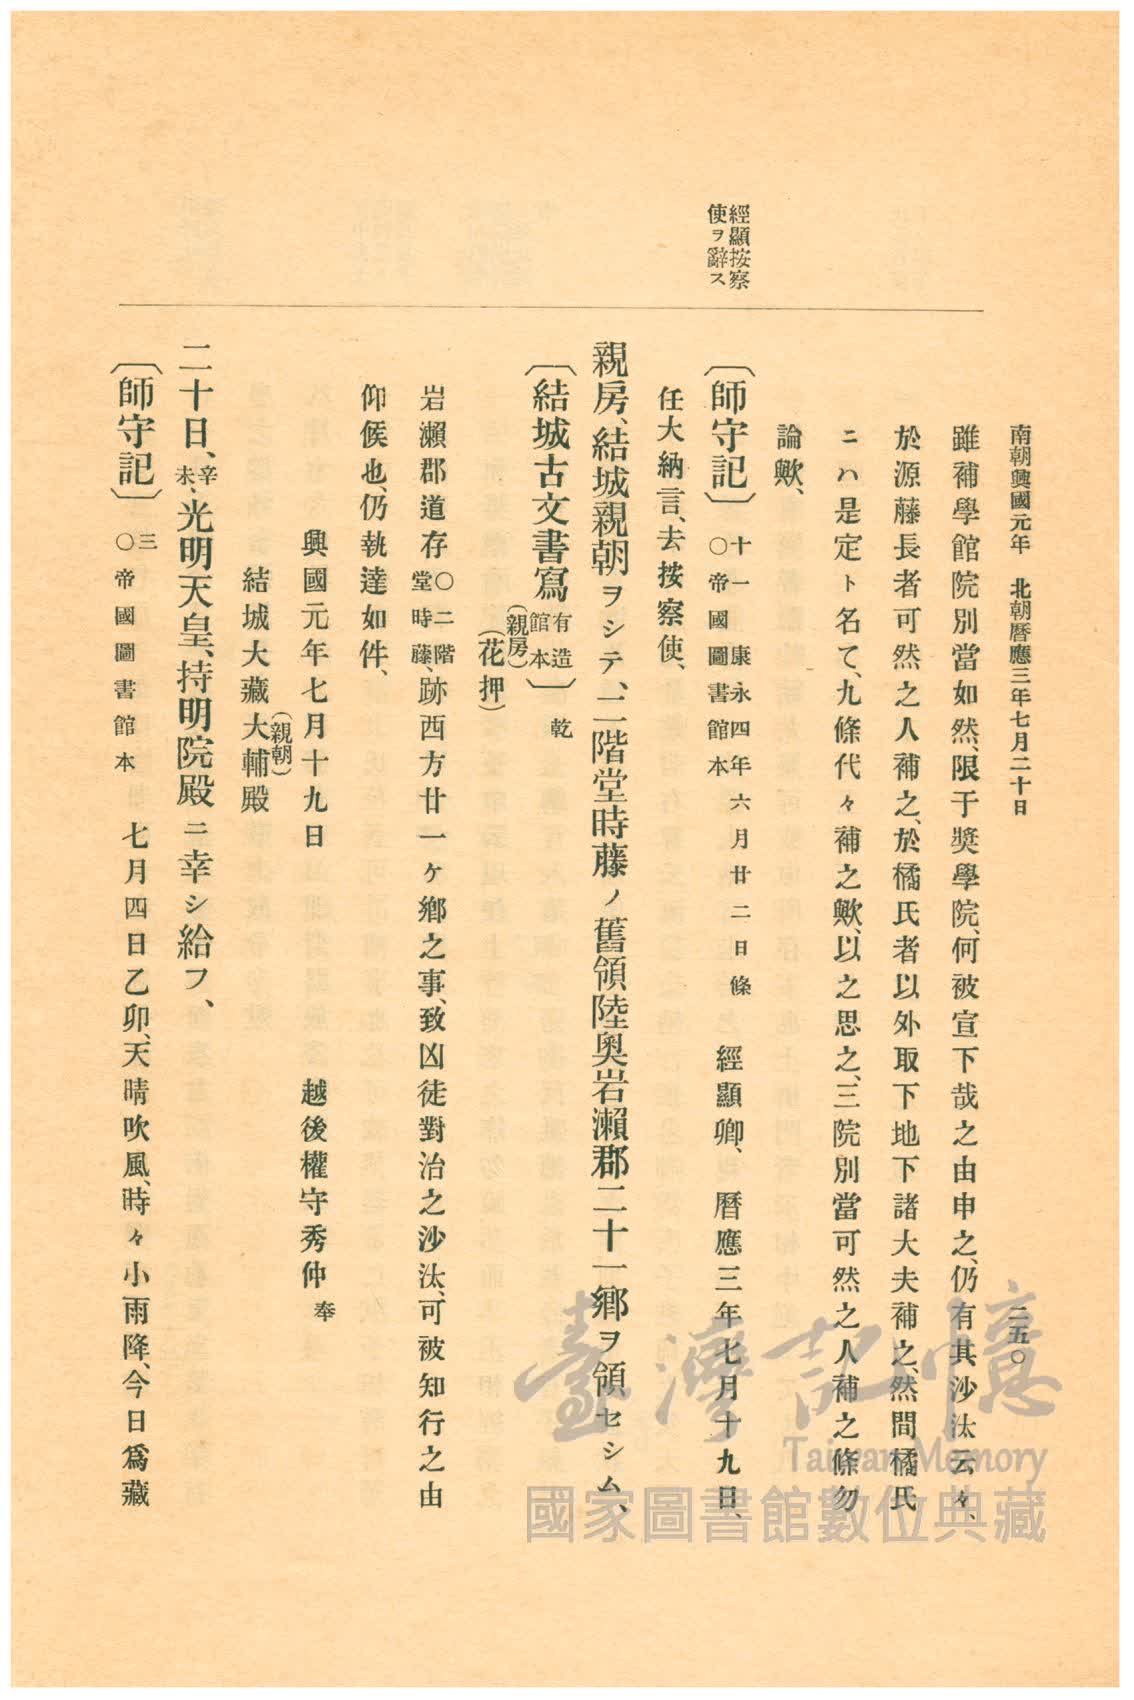 南朝興國元年　北朝曆應三年七月二十日　二五〇
雖補學館院別當如然、限于奬學院、何被宣下哉之由申之、仍有其沙汰云々、
於源藤長者可然之人補之、於橘氏者以外取下地下諸大夫補之、然間橘氏
ニハ是定ト名て、九條代々補之歟、以之思之、三院別當可然之人補之條勿
論歟、
經顯按察
使ヲ辭ス
〔師守記〕十一　康永四年六月廿二日條
○帝國圖書館本
經顯卿、曆應三年七月十九日、
任大納言、去按察使、
親房、結城親朝ヲシテ、二階堂時藤ノ舊領陸奧岩瀨郡二十一鄉ヲ領セシム、
〔結城古文書寫〕有造館本　乾
（親房）
（花押）
岩瀨郡道存○二階堂時藤、跡西方廿一ヶ鄉之事、致凶徒對治之沙汰、可被知行之由
仰候也、仍執達如件、
興國元年七月十九日　越後權守秀仲奉
（親朝）
結城大藏大輔殿
二十日、辛未、光明天皇、持明院殿ニ幸シ給フ、
〔師守記〕三
○帝國圖書館本
七月四日乙卯、天晴吹風、時々小雨降、今日爲藏
臺灣記憶
Taiwan Memory
國家圖書館數位典藏